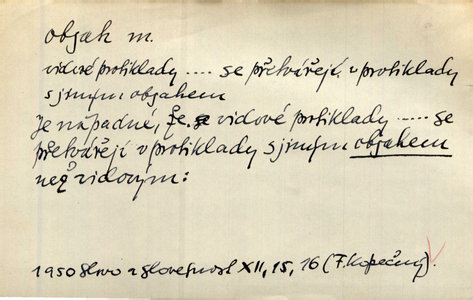 objak m.
vidové protiklady .... se přetvářejí v protiklady
s jiným objakem
Je nápadné, že se vidové protiklady ..... se
přetvářejí v protiklady s jiným objakem
než vidovým:
1950 Slovo a slovesnost XII, 15, 16 (F. Kopečný).